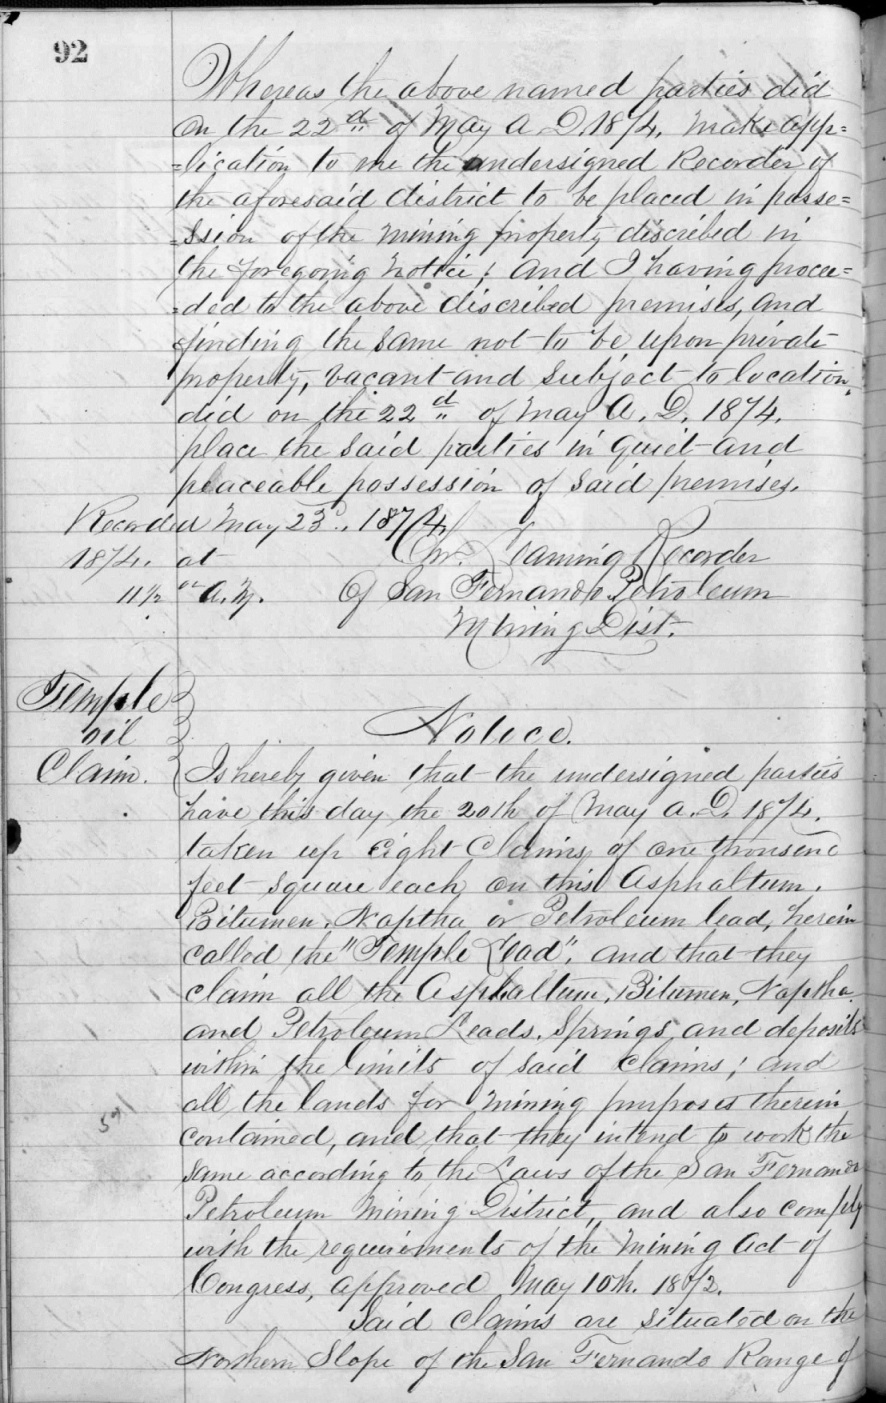 92
Whereas the above named parties did
on the 22d of May A.D. 1874, make app=
=lication to me the undersigned Recorder of
the aforesaid district to be placed in posse=
=ssion of the Mining property discribed in
the foregoing Notice; And I having procee=
=ded to the above discribed premises, and
finding the same not to be upon private
property, vacant and subject to location,
did on the 22d of May A. D. 1874.
place the said parties in quiet and
peaceable possession of said premises.
Recorded May 23d., 1874
1874. at Chr. Leaming Recorder
11 1/2 A.M. Of San Fernando Petroleum
Mining Dist.
Temple
oil
Claim.
Notice.
Is hereby given that the undersigned parties
have this day the 20th of May A.D. 1874.
taken up Eight Claims of one thousand
feet square each on this Asphaltum.
Bitumen. Naptha or Petroleum lead, herein
called the "Temple Lead". And that they
claim all the Asphaltum, Bitumen, Naptha
and Petroleum Leads. Springs and deposits
within the limits of said claims; and
all the lands for mining purposes therein
contained, and that they intend to work the
same according to the Laws of the San Fernando
Petroleum Mining District, and also comply
with the requirements of the Mining Act of
Congress, approved May 10th. 1872.
Said claims are situated on the
Northern Slope of the San Fernando Range of